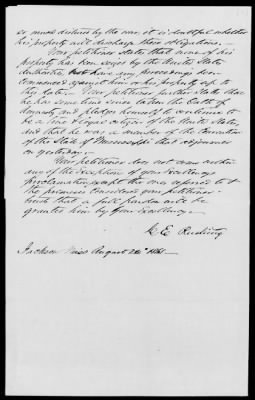 so much destroyed by the war, it is doubtful whether
his property will discharge these obligations. —
Your petitioner states that none of his
property has been seized by the United States
authorities, nor have any proceedings been
commenced against him or his property up to
this date. Your petitioner further states that
he has some time since taken the Oath of
Amnesty and pledges himself to continue to
be a true & loyal citizen of the United States,
and that he was a member of the Convention
of the State of Mississippi that adjourned
on yesterday. —
Your petitioner does not come within
any of the exceptions of your Excellency's
proclamation except the one referred to &
the premises considered your petitioner
trusts that a full pardon will be
granted him by your Excellency —
Jackson Miss August 1865 —